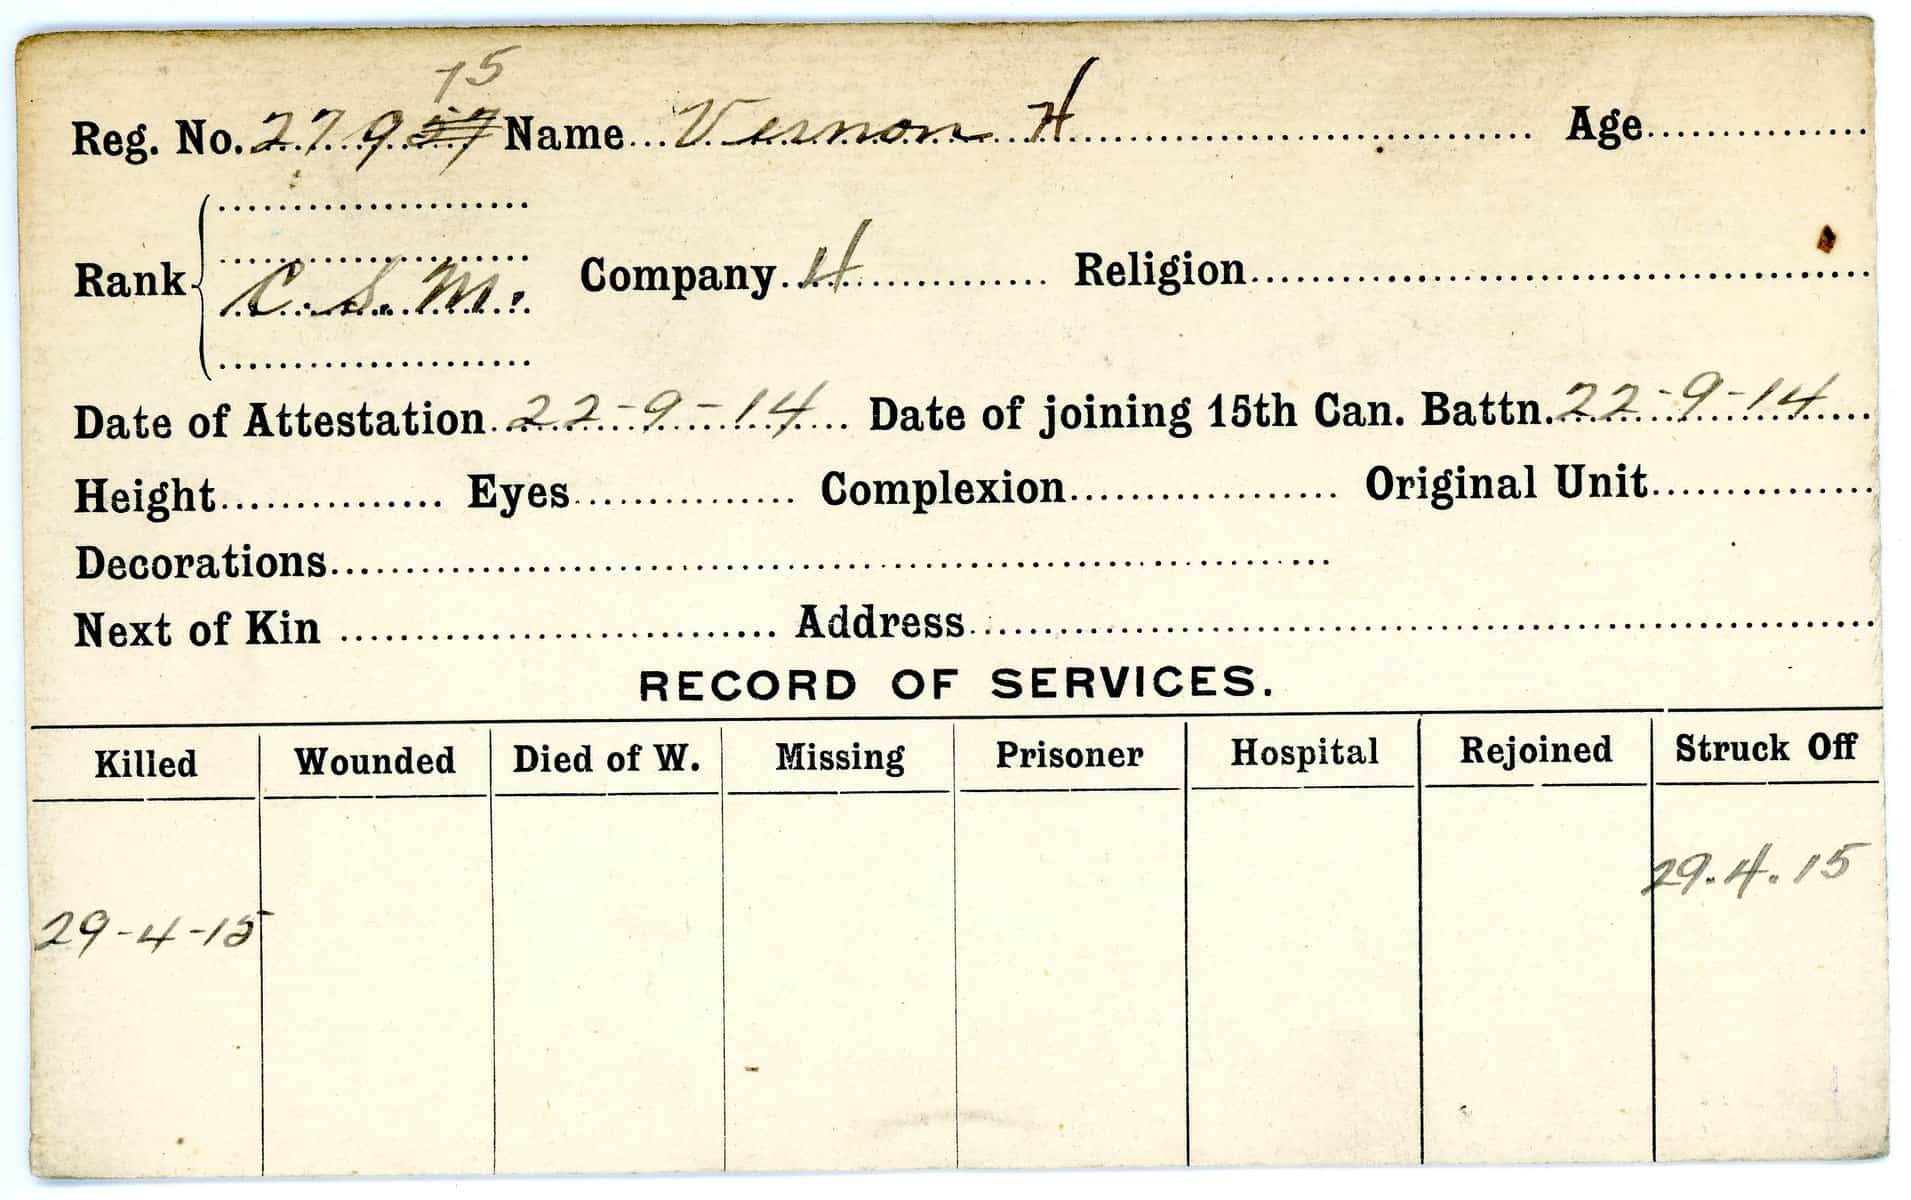 15
Reg. No. 27957 Name Vernon H Age
Rank C. S. M. Company H Religion
Date of Attestation 22-9-14 Date of joining 15th Can. Battn. 22-9-14
Height Eyes Complexion Original Unit
Decorations
Next of Kin Address
RECORD OF SERVICES.
Killed Wounded Died of W. Missing Prisoner Hospital Rejoined Struck Off
29.4.15
29-4-15